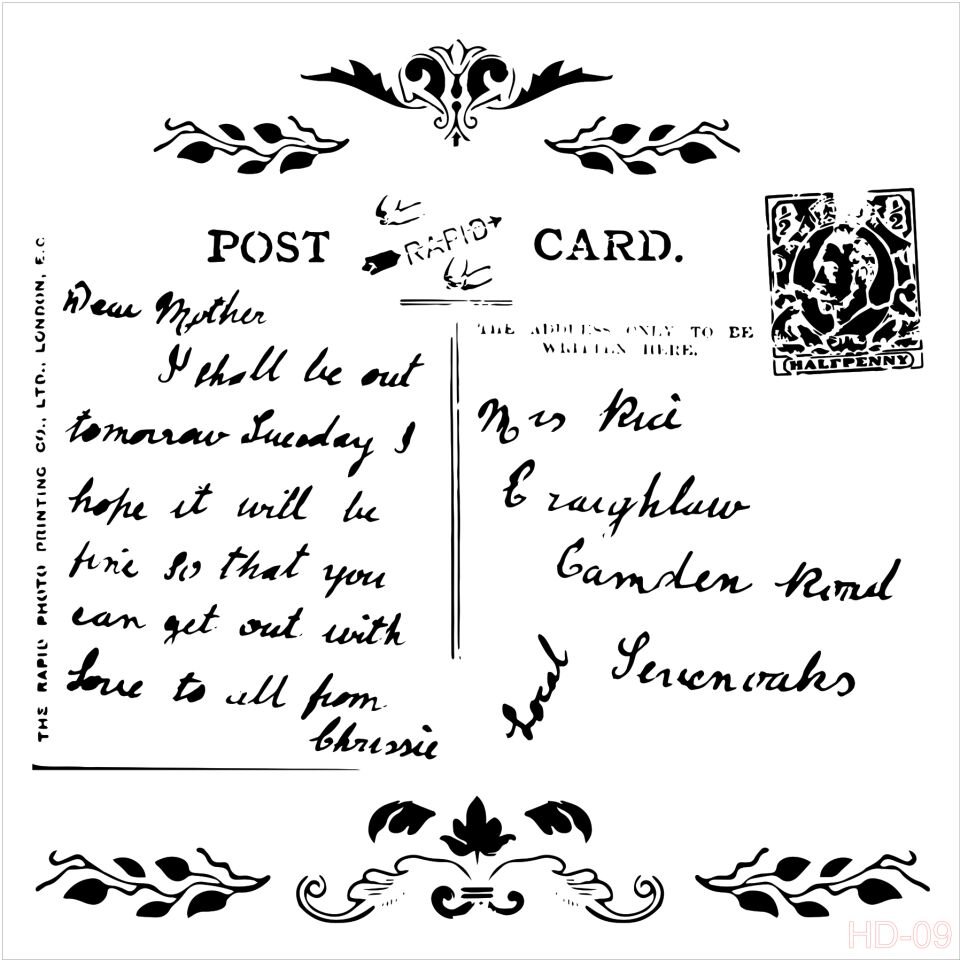 POST RAPID CARD.
THE ADDRESS ONLY TO BE
WRITTEN HERE.
1/2 1/2
HALFPENNY
THE RAPID PHOTO PRINTING CO., LTD., LONDON, E.C
Dear Mother
I shall be out
tomorrow Tuesday I
hope it will be
fine so that you
can get out with
Love to all from
Chrissie
Mrs Rice
Craighlaw
Camden Road
Sevenoaks
Local
HD-09